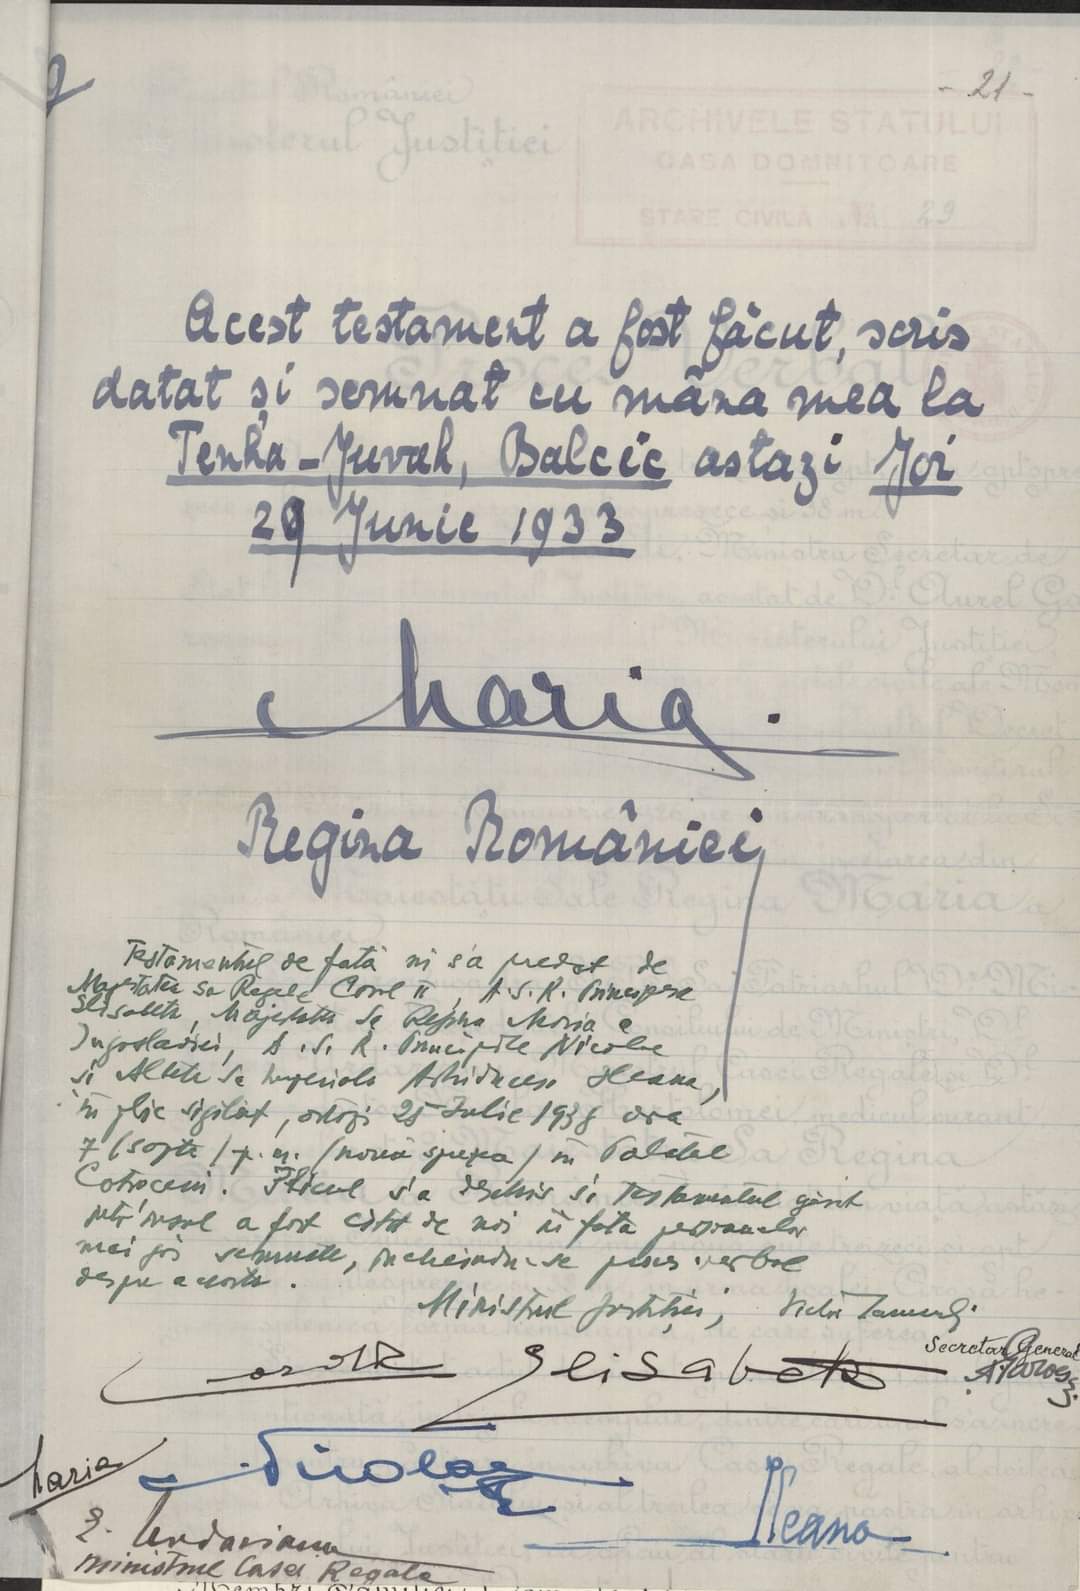 - 21 -
ARCHIVELE STATULUI
CASA DOMNITOARE
STARE CIVILĂ Nr. 29
Acest testament a fost făcut, scris
datat și semnat cu mâna mea la
Tenha-Juvah, Balcic astazi Joi
29 Junie 1933
Maria.
Regina României
Testamentul de față ni s'a predat de
Majestatea Sa Regele Carol II, A.S.R. Principesa
Elisabeta, Majestatea Sa Regina Maria a
Jugoslaviei, A.S.R. Principele Nicolae
și Alteța Sa Imperiala Arhiducesa Ileana,
în plic sigilat, astăzi 25 Iulie 1938 ora
7 (șapte) p.m. în Palatul
Cotroceni. Plicul s'a deschis si testamentul găsit
a fost citit de noi în fața persoanelor
mai jos semnate, încheindu-se proces verbal
despre aceasta.
Ministrul Justiției, Victor Iamandi
Secretar General
Carol R Elisabeta
Maria
Nicolae
Ileana
E. Urdarianu
Ministrul Casei Regale